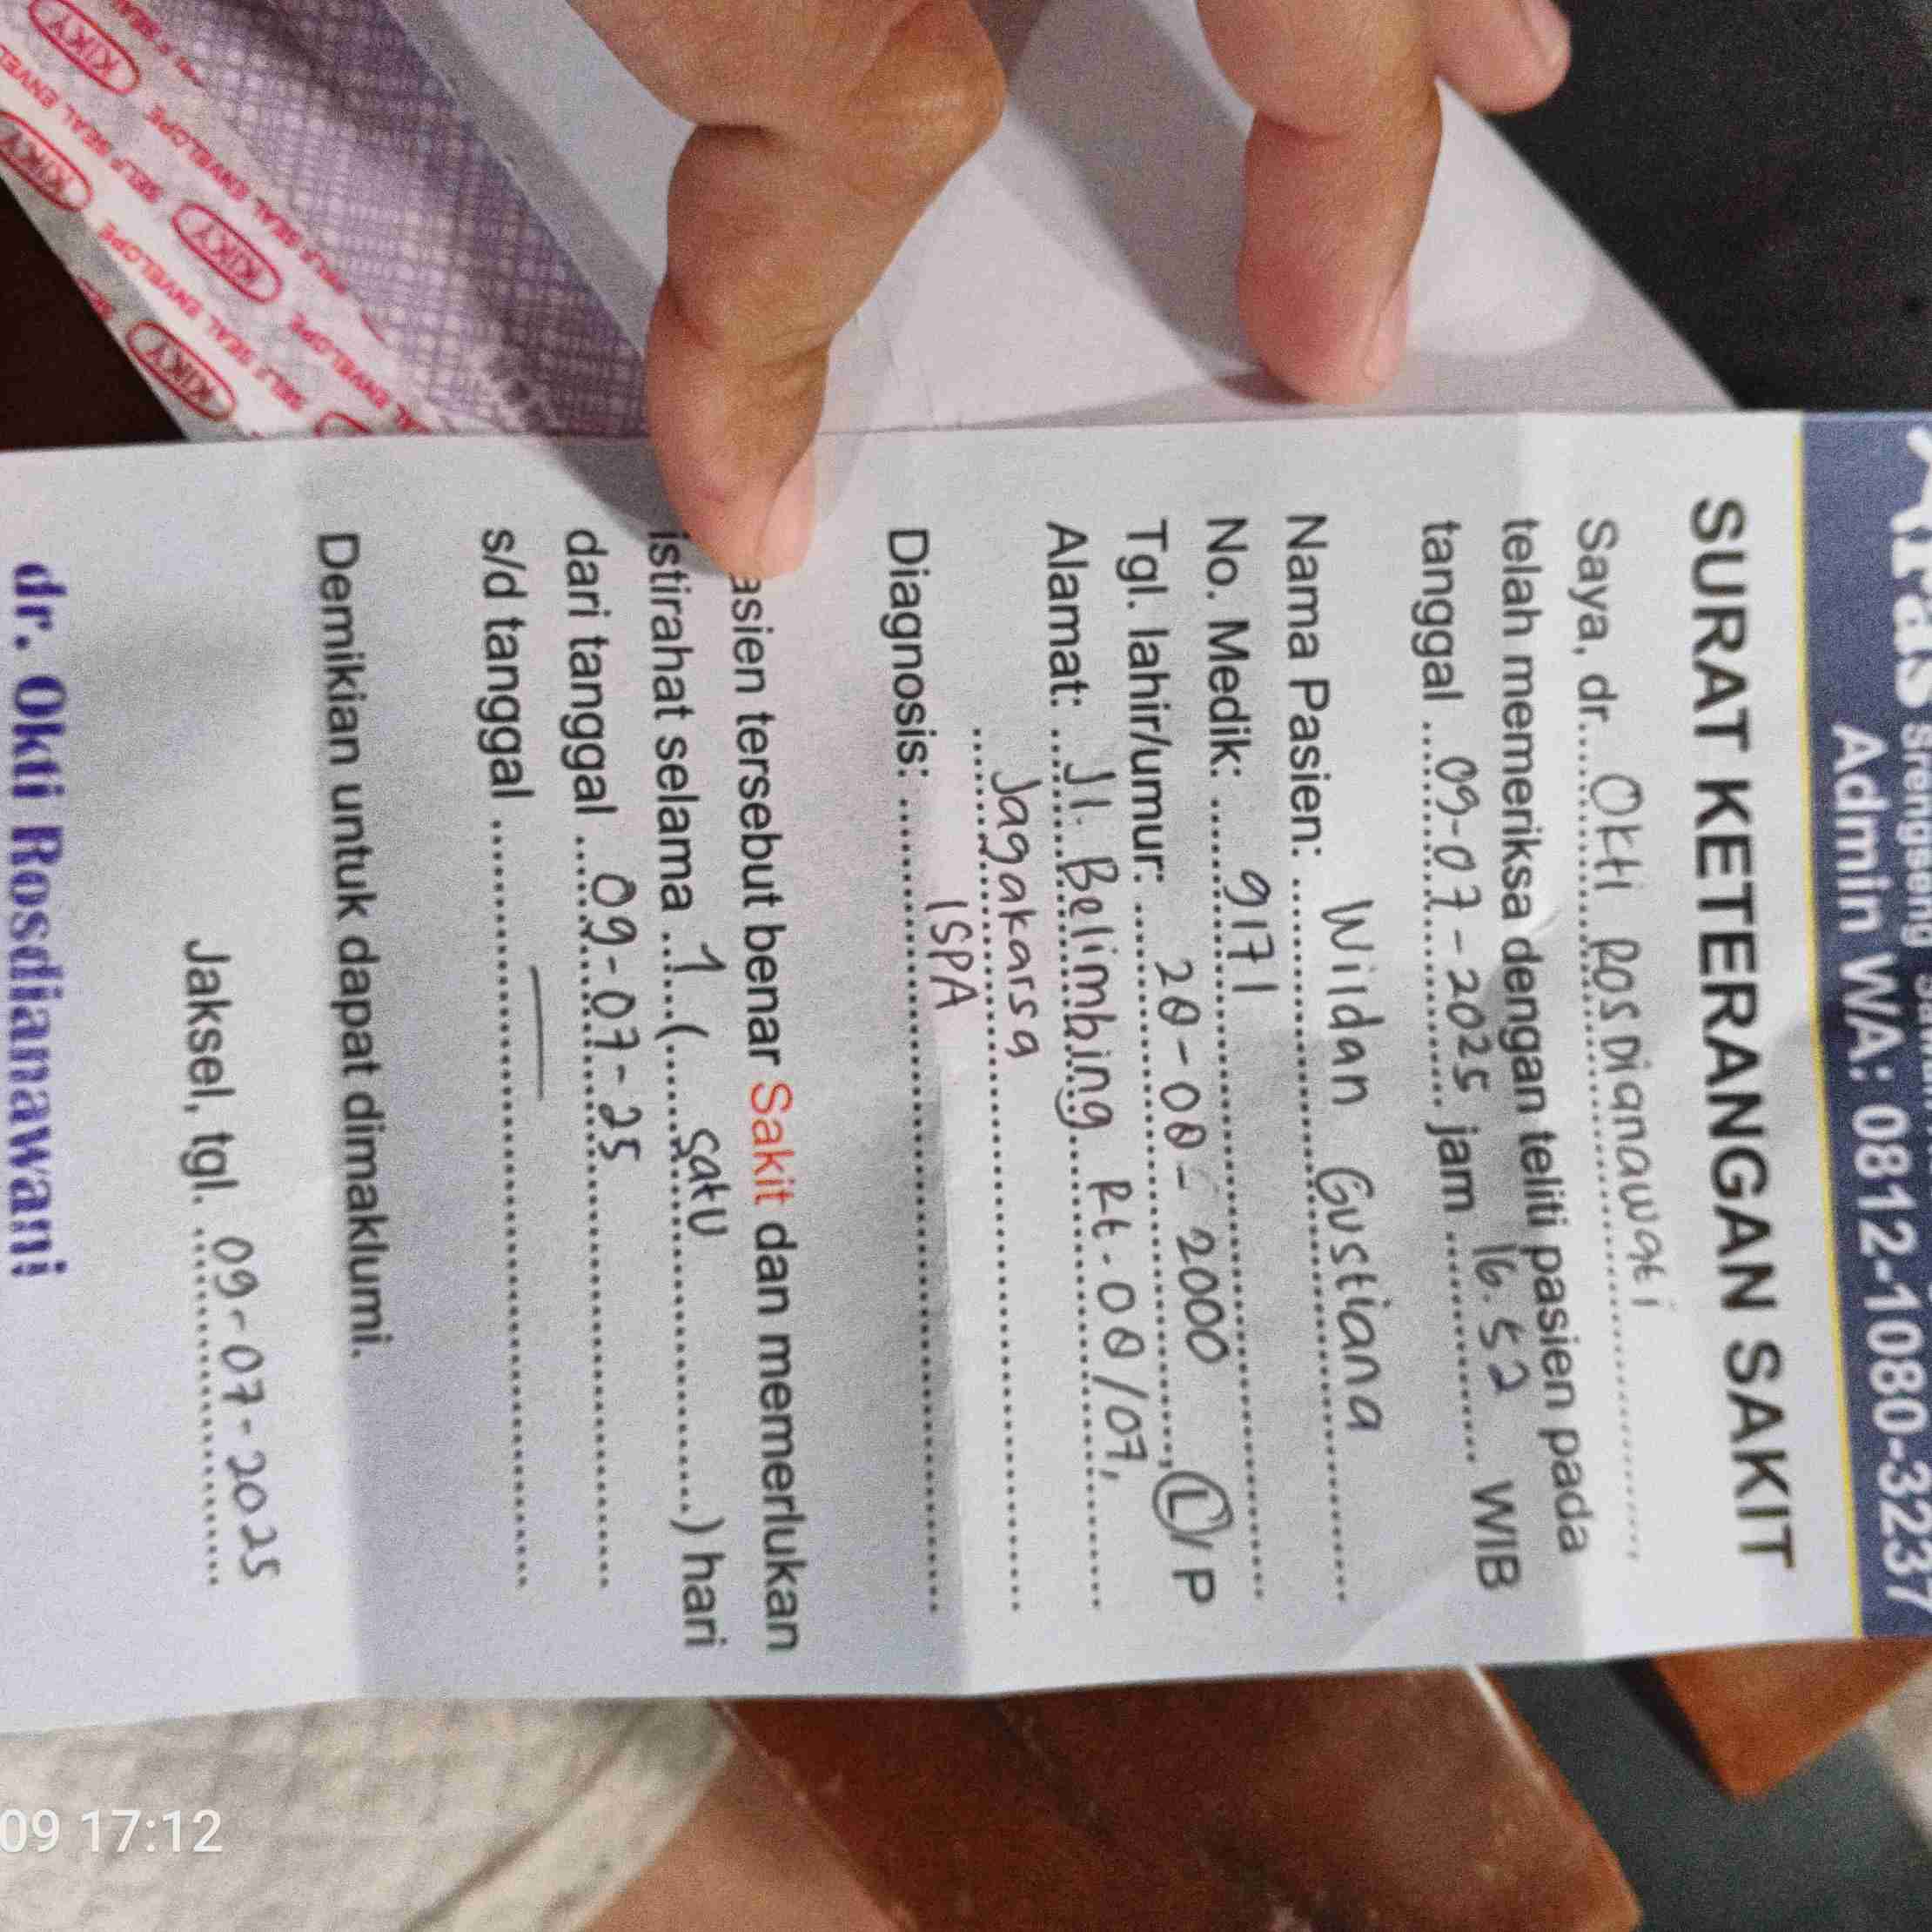 Srengseng
Admin WA: 0812-1080-3237
SURAT KETERANGAN SAKIT
Saya, dr. Okti Rosdianawati
telah memeriksa dengan teliti pasien pada
tanggal 09-07-2025 jam 16.52 WIB
Nama Pasien: Wildan Gustiana
No. Medik: 9171
Tgl. lahir/umur: 28-08-2000, L/P
Alamat: Jl. Belimbing Rt.08/07,
Jagakarsa
Diagnosis: ISPA
asien tersebut benar Sakit dan memerlukan
istirahat selama 1 (satu) hari
dari tanggal 09-07-25
s/d tanggal —
Demikian untuk dapat dimaklumi.
Jaksel, tgl. 09-07-2025
dr. Okti Rosdianawani
KIKY SELF SEAL ENVELOPE
09 17:12